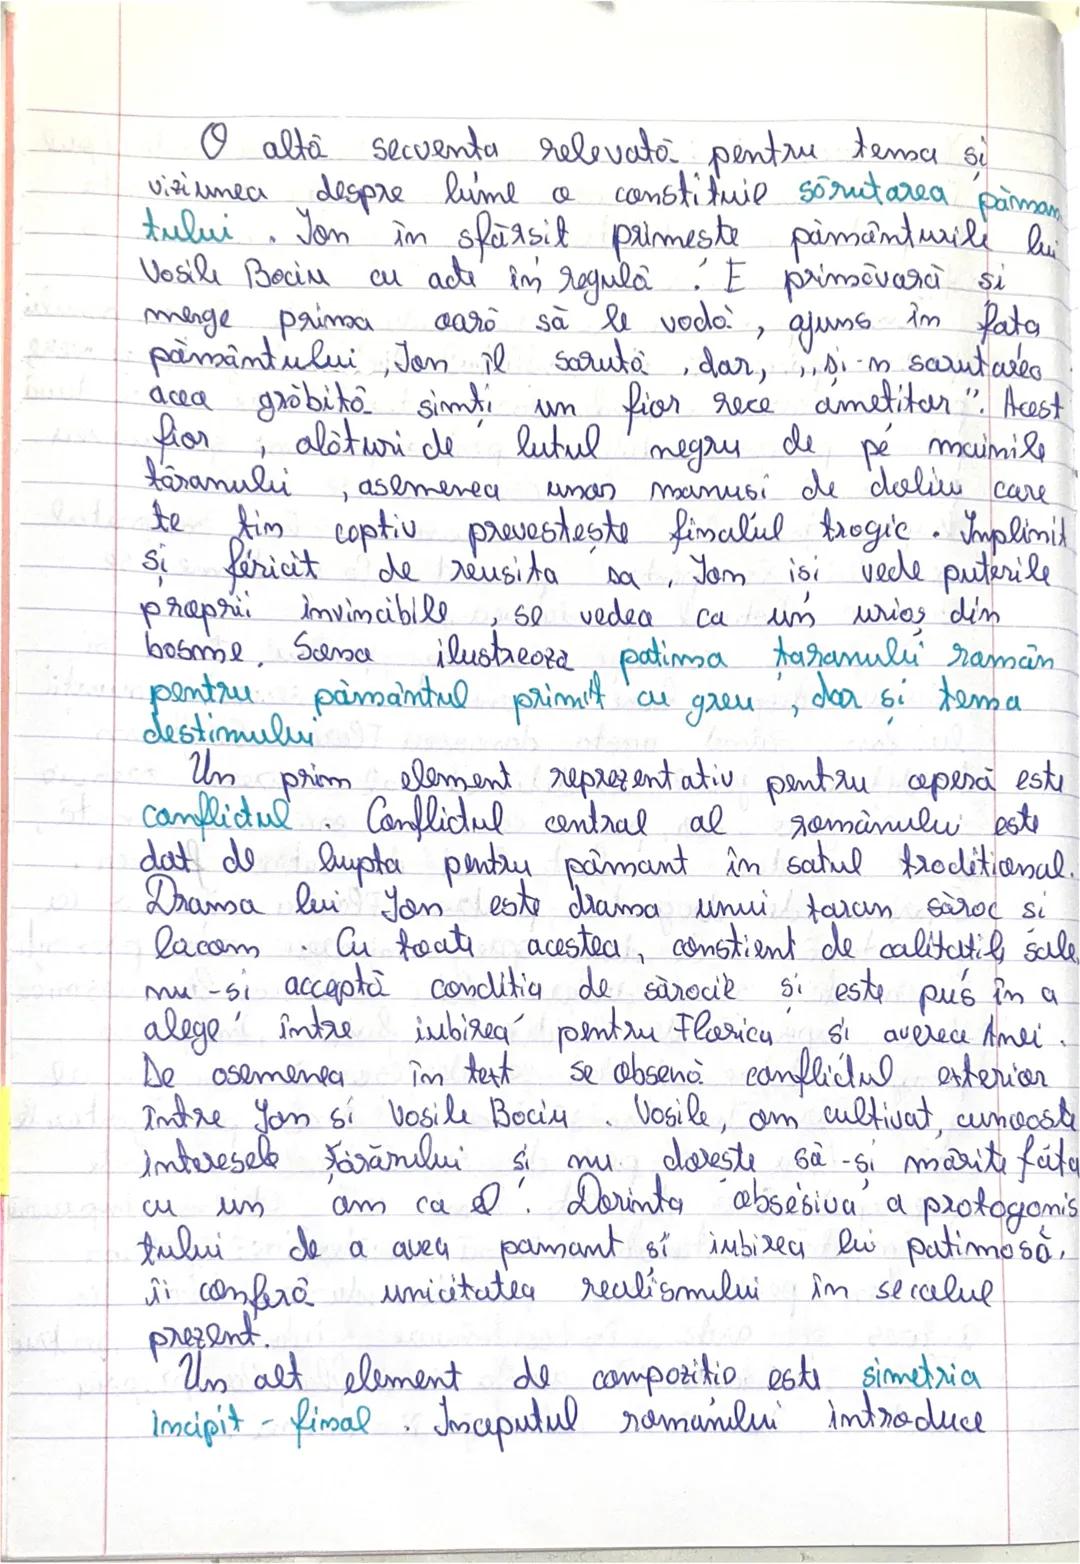 O altă secventa relevată pentru tema și
viziunea despre lume o constituie sărutarea pămân
tului. Ion în sfârsit primește pământurile lui
Vasile Baciu cu acte în regulă. E primăvară și
merge prima oară să le vadă, ajuns în fața
pământului, Ion îl sarută, dar, „și-n sarutarea
acea grăbită simți un fior rece ametitor". Acest
fior, alături de lutul negru de pe mainile
țăranului, asemenea unor manusi de doliu care
te țin captiv prevestește finalul tragic. Implinit
și fericit de reusita sa, Ion isi vede puterile
proprii invincibile, se vedea ca un urias din
basme. Scena ilustreaza patima taranului român
pentru pământul primit cu greu, dar si tema
destinului
Un prim element reprezentativ pentru operă este
conflictul. Conflictul central al romanului este
dat de lupta pentru pământ în satul traditional.
Drama lui Ion este drama unui taran sărac si
lacom. Cu toate acestea, constient de calitatile sale,
nu-si acceptă conditia de sărocie și este pus în a
alege între iubirea pentru Florica si averea Anei.
De asemenea în text se observă conflictul exterior
între Ion si Vasile Baciu. Vasile, om cultivat, cunoaste
interesele țărănului și nu dorește să-si mărite fata
cu un om ca el. Dorinta obsesiva a protagonis
tului de a avea pamant si iubirea lui patimosă,
ii conferă unicitatea realismului în secolul
prezent.
Un alt element de compozitio este simetria
incipit - final. Inceputul romanului introduce